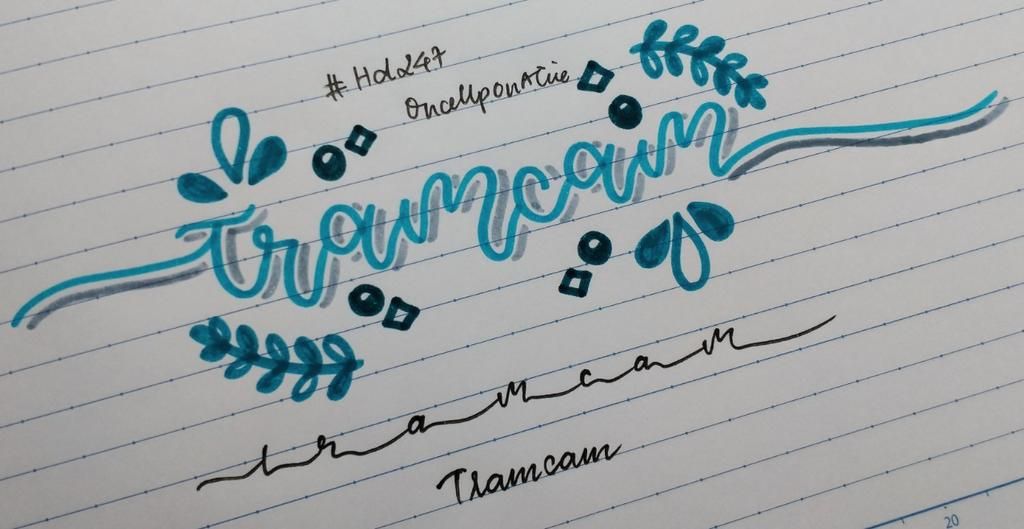 #Hdl247
OnceUponATiie
Tramcam
tramcam
Tramcam
20